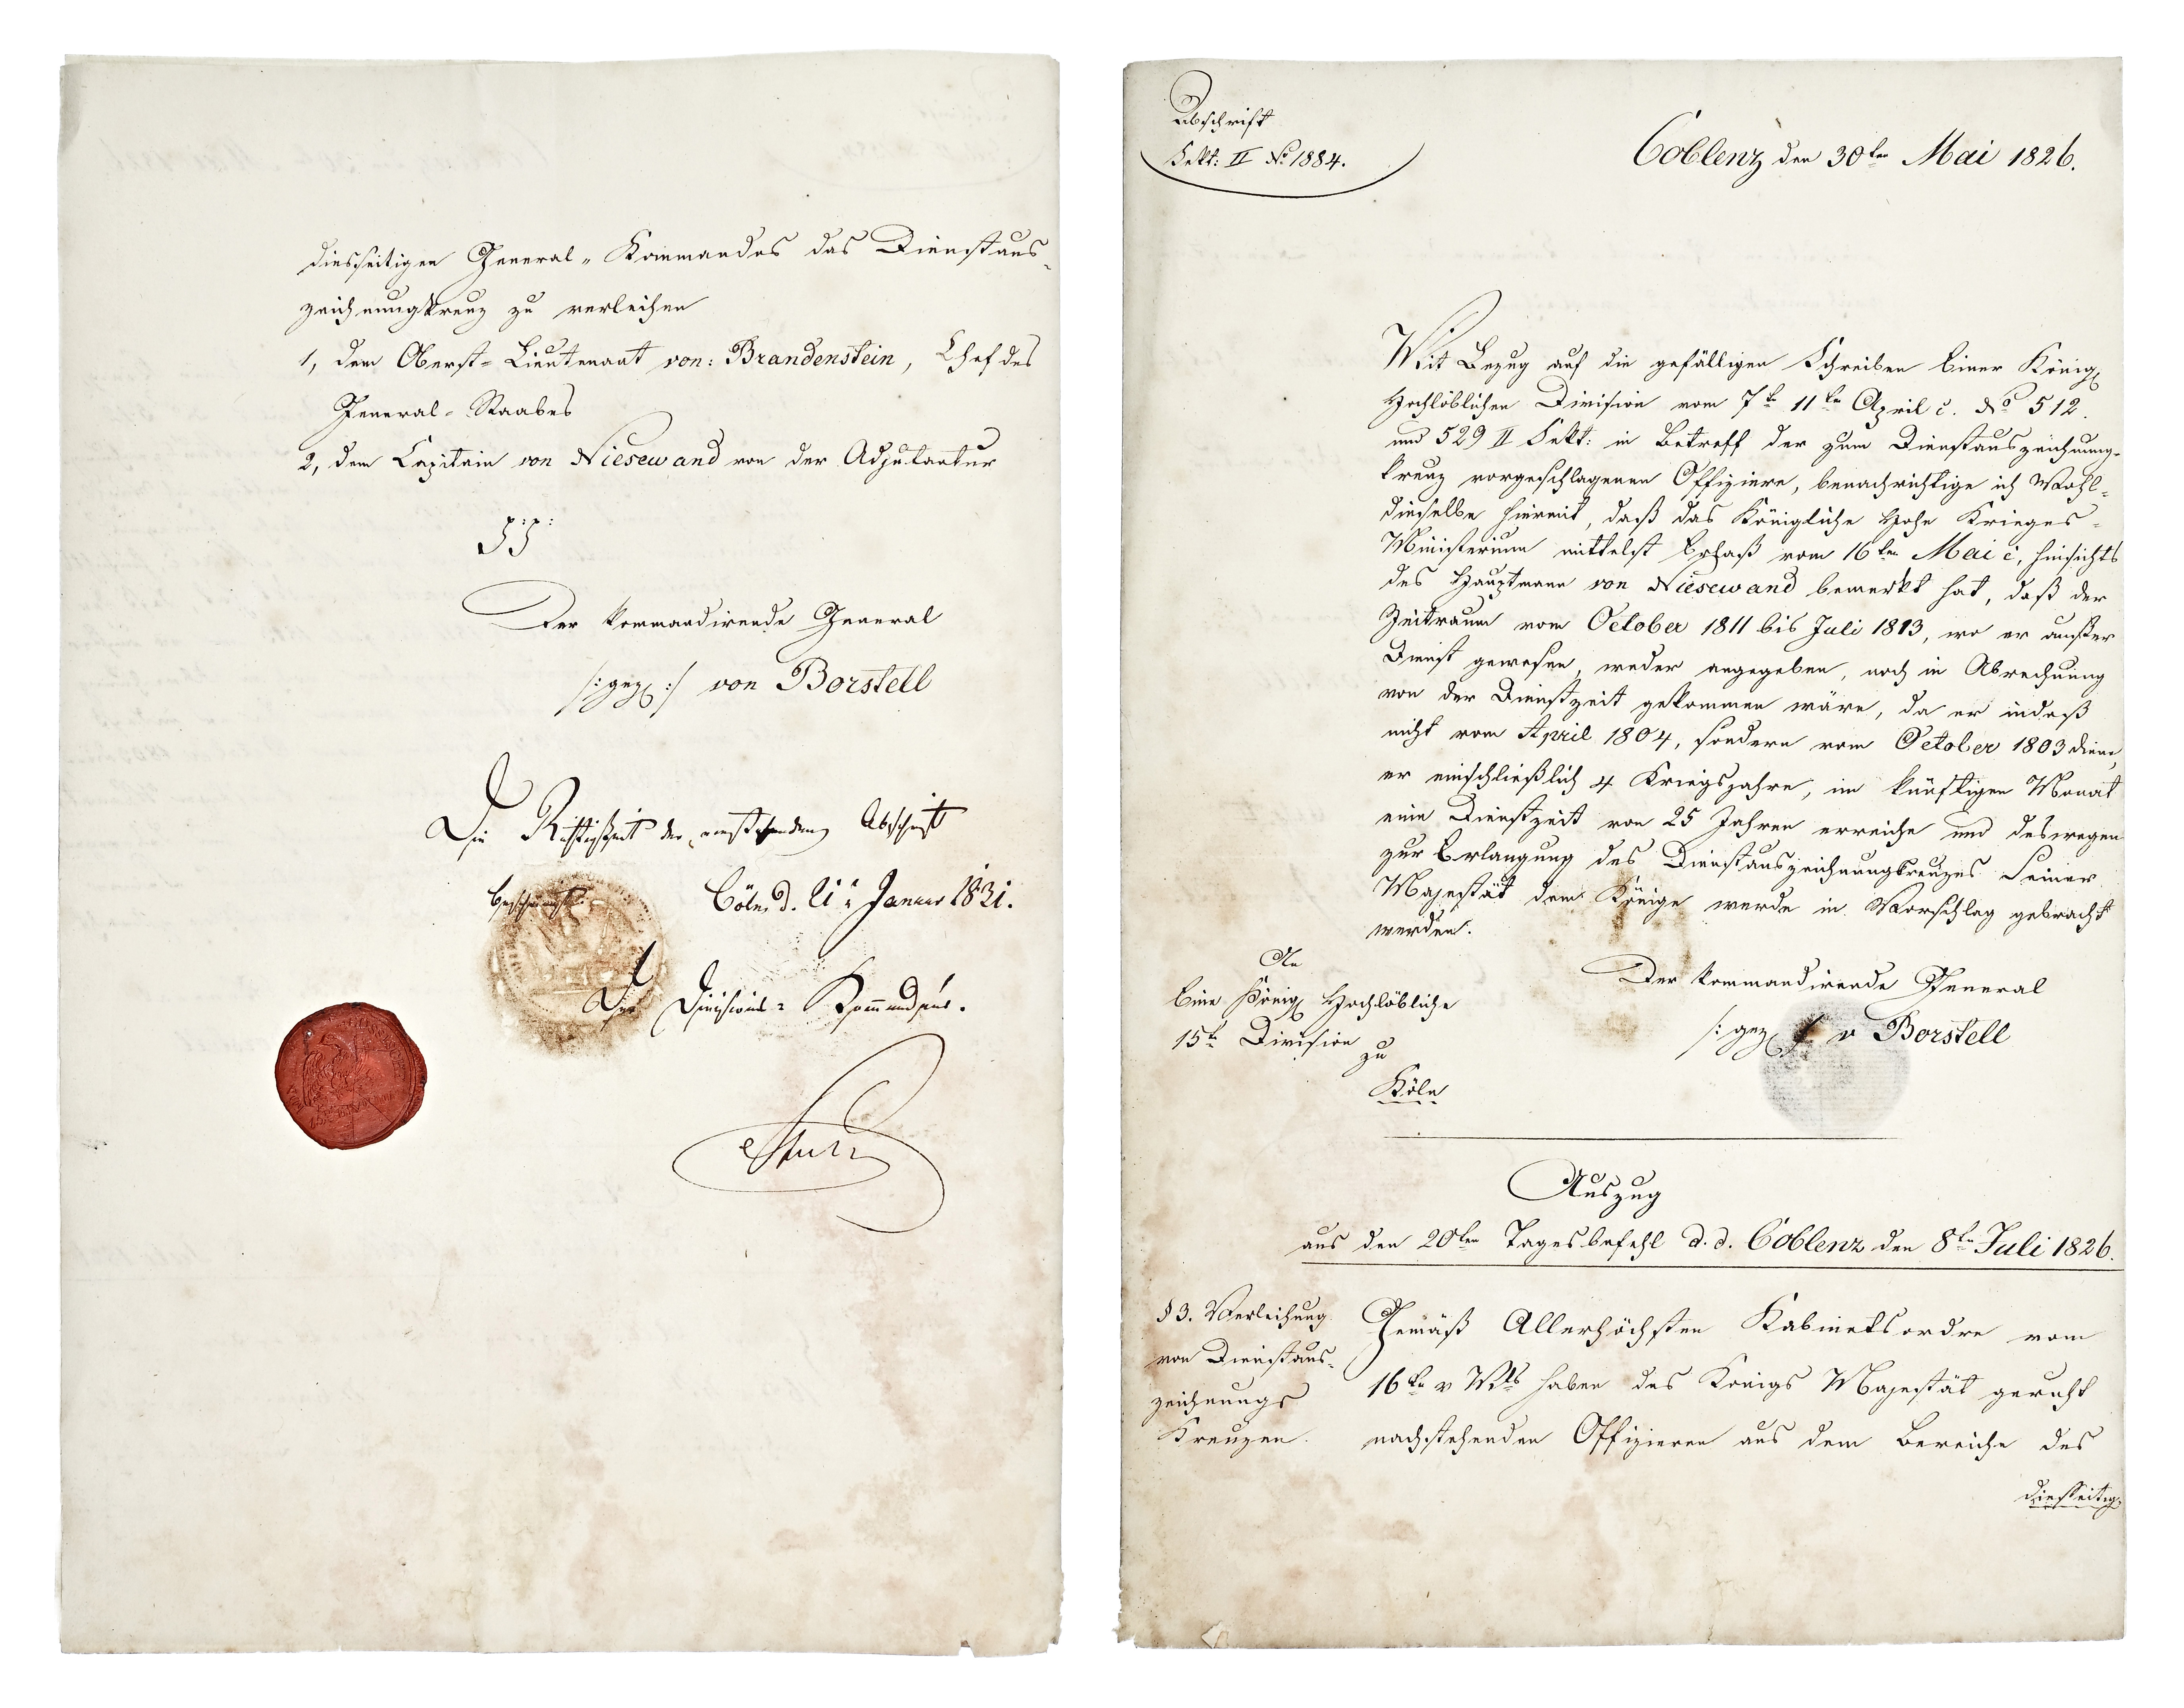 Abschrift
Sekt: II No 1884.
Coblenz den 30ten Mai 1826.
Mit Bezug auf die gefälligen Schreiben Einer Königl
Hochlöblichen Division vom 7t 11ten April c. No 512
und 529 II Sekt: in Betreff der zum Dienstauszeichnung-
kreuz vorgeschlagenen Offiziere, benachrichtige ich Wohl-
dieselbe hiermit, daß das Königliche Hohe Krieges-
Ministerium mittelst Erlaß vom 16ten Mai c, hinsichts
des Hauptmann von Niesewand bemerkt hat, daß der
Zeitraum vom October 1811 bis Juli 1813, wo er außer
Dienst gewesen, weder angegeben, noch in Abrechnung
von der Dienstzeit gekommen wäre, da er indeß
nicht vom April 1804, sondern vom October 1803 diene,
er einschließlich 4 Kriegsjahre, im künftigen Monat
eine Dienstzeit von 25 Jahren erreiche und deswegen
zur Erlangung des Dienstauszeichnungkreuzes Seiner
Majestät dem Könige werde in Vorschlag gebracht
werden.
Der kommandirende General
/: gez v Borstell
An
Eine Königl Hochlöbliche
15te Division
zu
Köln
Auszug
aus den 20ten Tagesbefehl d. d. Coblenz den 8ten Juli 1826.
§ 3. Verleihung
von Dienstaus-
zeichnungs
Kreuzen.
Gemäß Allerhöchsten Kabinetsordre vom
16ten v Mts haben des Königs Majestät geruht
nachstehenden Offizieren aus dem Bereiche des
diesseitig
diesseitigen General-Kommandos das Dienstaus-
zeichnungkreuz zu verleihen
1, dem Oberst-Lieutenant von: Brandenstein, Chef des
General-Staabes
2, dem Capitain von Niesewand von der Adjutantur
pp:
Der kommandirende General
/: gez :/ von Borstell
Die Richtigkeit der vorstehenden Abschrift
bescheinigt.
Cöln, d. Januar 1831.
Der Divisions-Kommandeur.